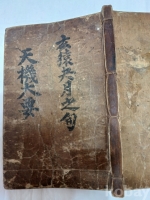 玄猿六月之旬
天機大要